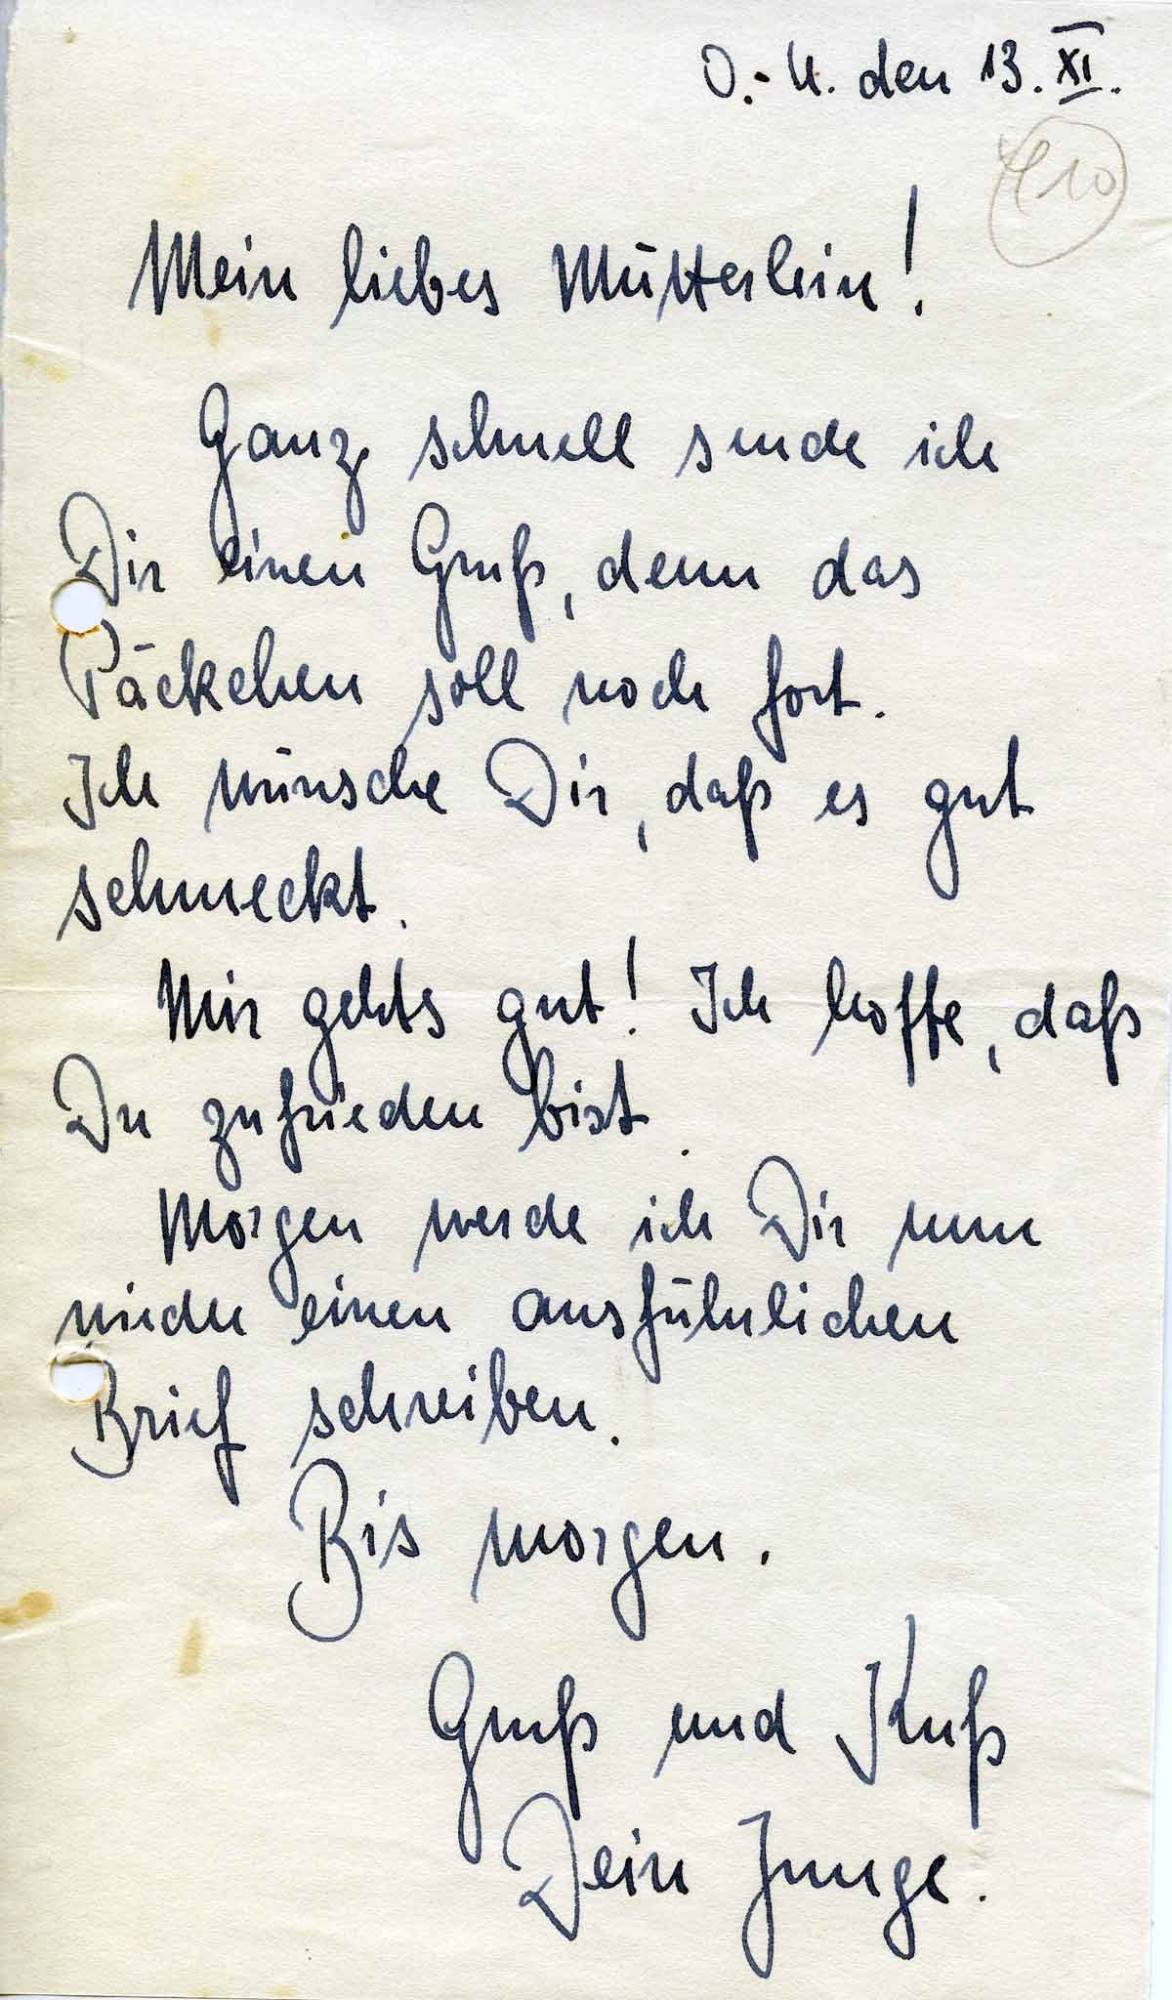 O.-U. den 13. XI.
Mein liebes Mütterlein!
Ganz schnell sende ich
Dir einen Gruß, denn das
Päckchen soll noch fort.
Ich wünsche Dir, daß es gut
schmeckt.
Mir gehts gut! Ich hoffe, daß
Du zufrieden bist.
Morgen werde ich Dir nun
wieder einen ausführlichen
Brief schreiben.
Bis morgen.
Gruß und Kuß
Dein Junge.